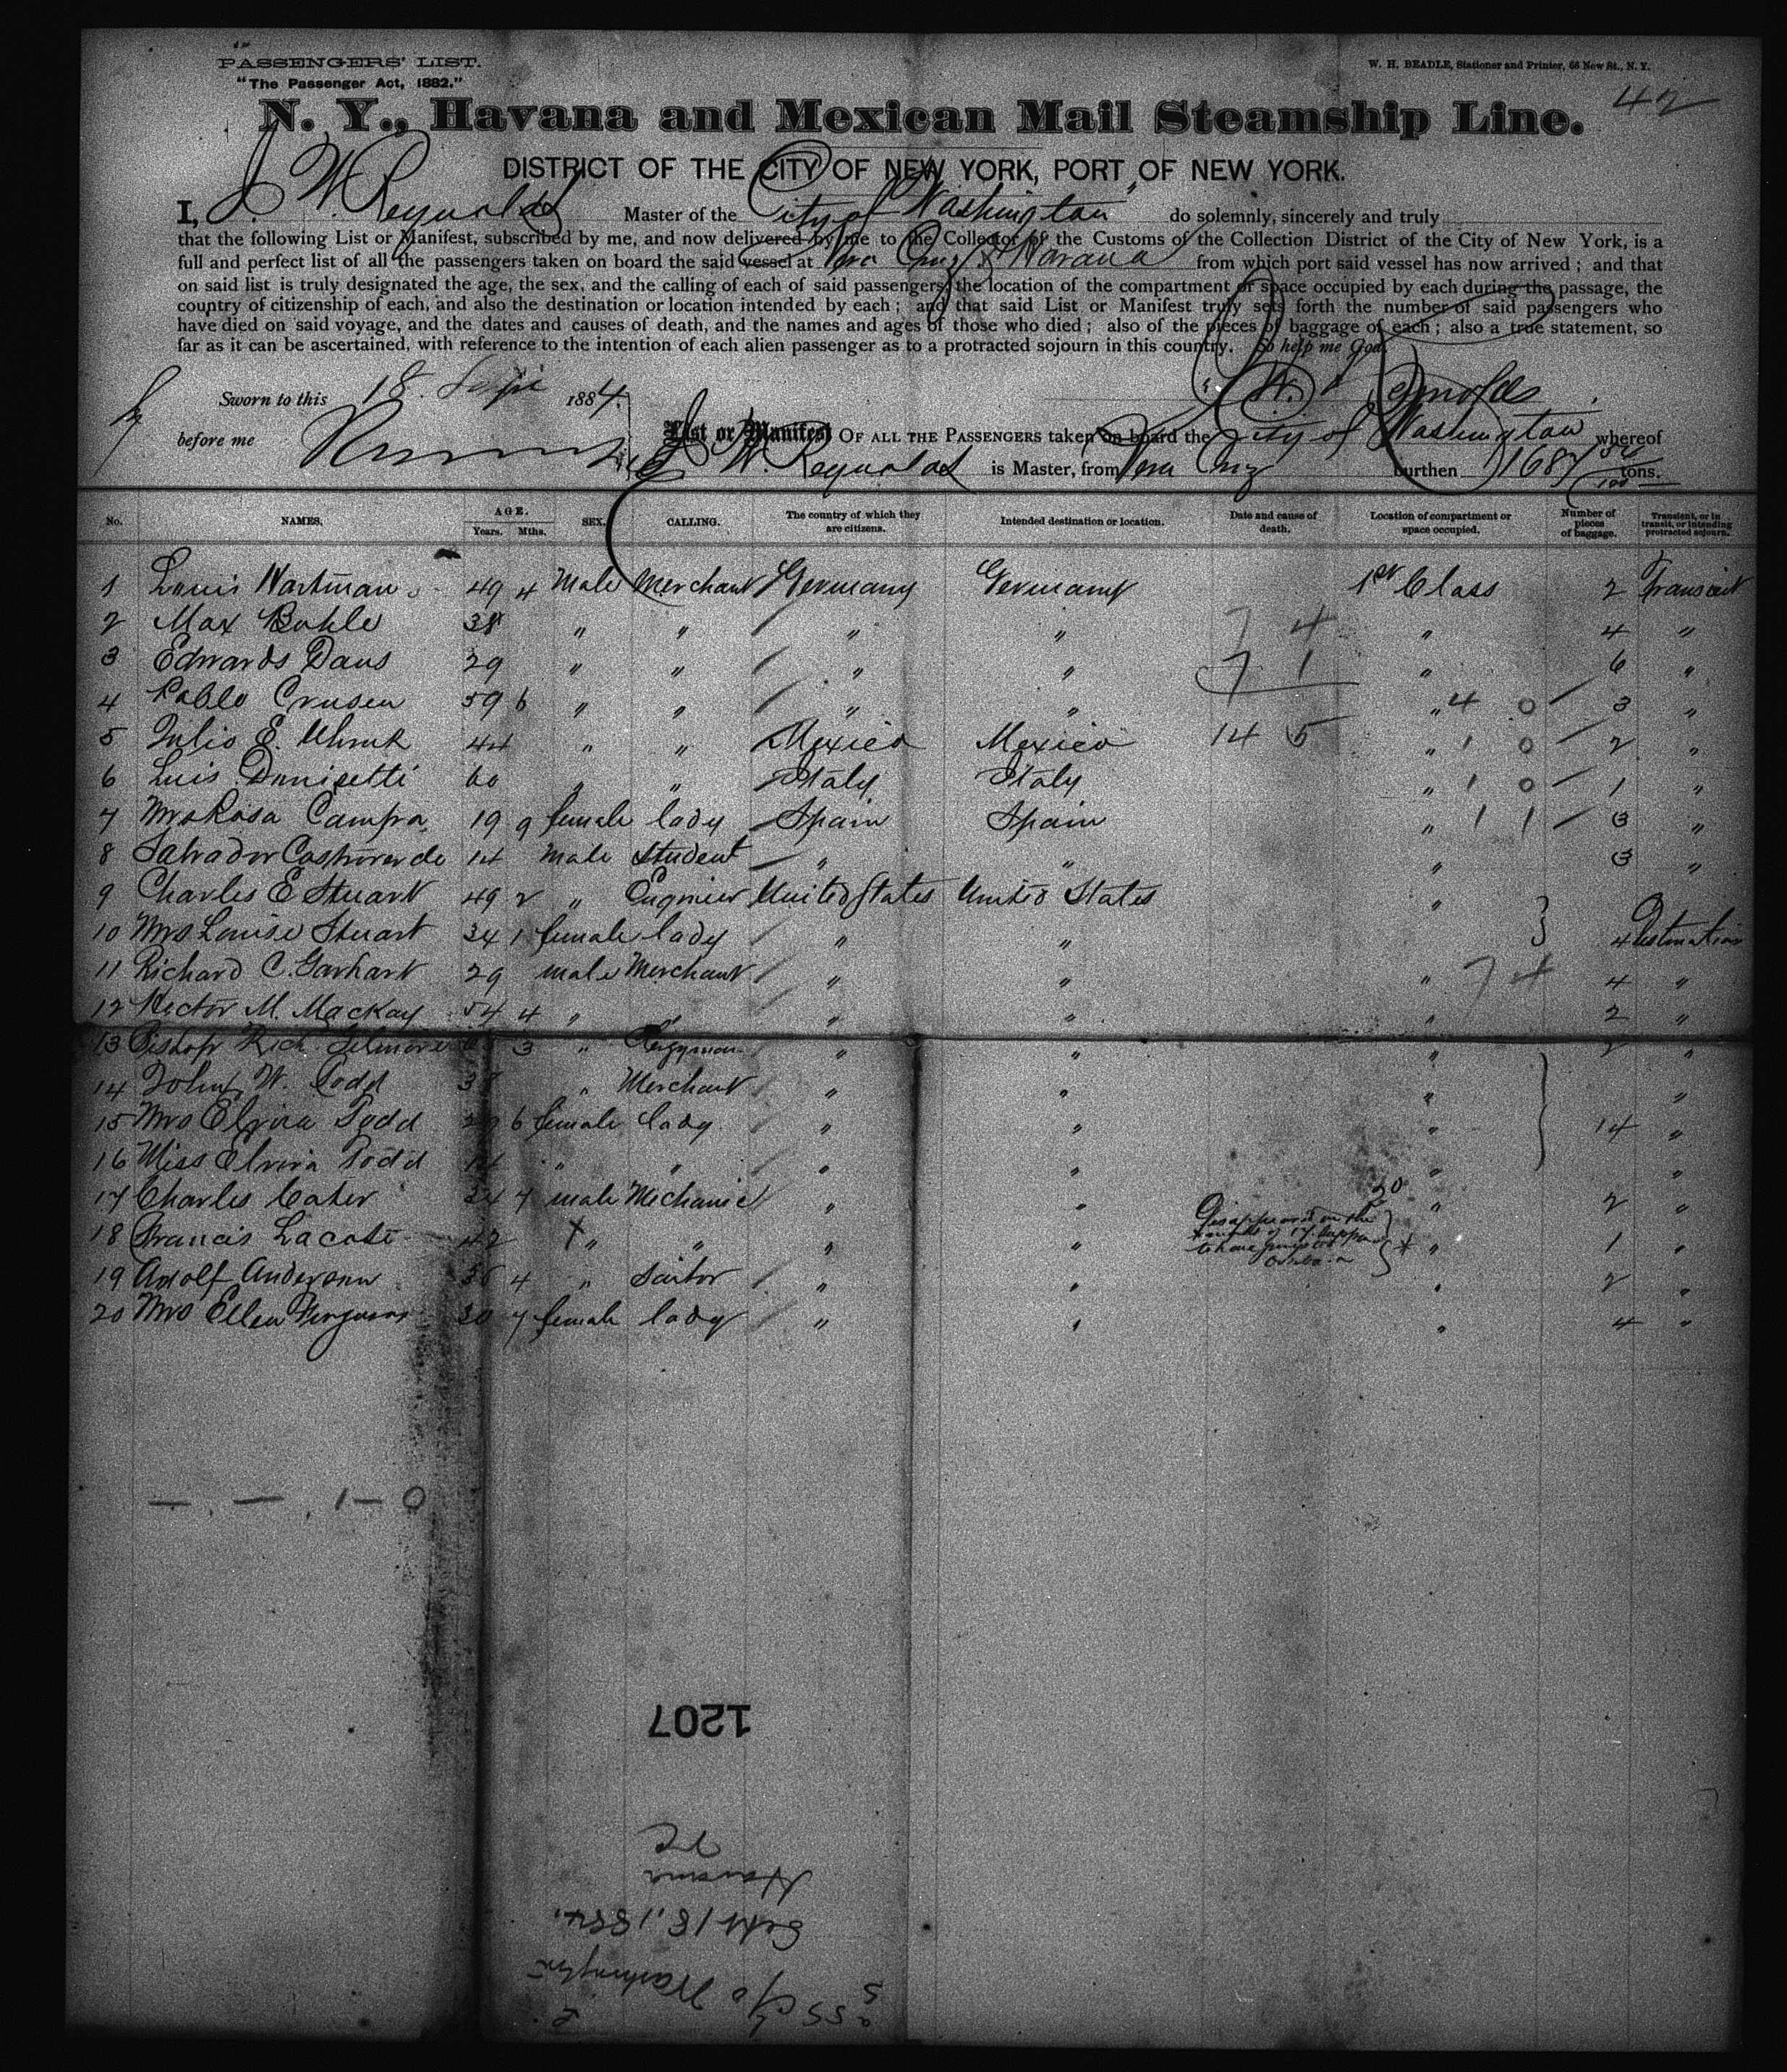 PASSENGERS' LIST.
"The Passenger Act, 1882."
W. H. BEADLE, Stationer and Printer, 66 New St., N. Y.
42
N. Y., Havana and Mexican Mail Steamship Line.
DISTRICT OF THE CITY OF NEW YORK, PORT OF NEW YORK.
I, J. W. Reynolds Master of the "City of Washington" do solemnly, sincerely and truly
that the following List or Manifest, subscribed by me, and now delivered by me to the Collector of the Customs of the Collection District of the City of New York, is a
full and perfect list of all the passengers taken on board the said vessel at Vera Cruz & Havana from which port said vessel has now arrived; and that
on said list is truly designated the age, the sex, and the calling of each of said passengers, the location of the compartment or space occupied by each during the passage, the
country of citizenship of each, and also the destination or location intended by each; and that said List or Manifest truly sets forth the number of said passengers who
have died on said voyage, and the dates and causes of death, and the names and ages of those who died; also of the pieces of baggage of each; also a true statement, so
far as it can be ascertained, with reference to the intention of each alien passenger as to a protracted sojourn in this country. So help me God.
Sworn to this 18. Sept 1884. J. W. Reynolds
before me
List or Manifest OF ALL THE PASSENGERS taken on board the City of Washington whereof
J. W. Reynolds is Master, from Vera Cruz burthen 1687 50/100 tons.
No. NAMES. AGE. Years. Mths. SEX. CALLING. The country of which they are citizens. Intended destination or location. Date and cause of death. Location of compartment or space occupied. Number of pieces of baggage. Transient, or in transit, or intending protracted sojourn.
1 Louis Wartman 49 4 Male Merchant Germany Germany 1st Class 2 Transient
2 Max Bohle 38 " " " " 7 4 " 4 "
3 Edwards Daus 29 " " " " 7 1 " 6 "
4 Pablo Crusen 59 6 " " " " " 4 0 3 "
5 Julio E. 44 " " Mexico Mexico 14 5 " 1 0 2 "
6 Luis Donisetti 60 " " Italy Italy " 1 0 1 "
7 Mrs Rosa Campra 19 9 female lady Spain Spain " 1 1 3 "
8 Salvador Castroverde 14 male Student " " " 3 "
9 Charles E Stuart 49 2 " Engineer United States United States "
10 Mrs Louise Stuart 34 1 female lady " " 4 Destination
11 Richard C. Garhart 29 male Merchant " " " 7 4 4 "
12 Hector M. Mackay 54 4 " " " " " 2 "
13 Bishop Rich. Gilmore 3 " Clergyman " " " 2 "
14 John W. Todd 38 " Merchant " " " "
15 Mrs Elvira Todd 29 6 female lady " " " 14 "
16 Miss Elvira Todd 14 " " " " " "
17 Charles Cater 34 7 male Mechanic " " 20 " 2 "
18 Francis Lacoste 42 X " " " " Disappeared on the * " 1 "
night of 17. suppose
to have jumped
overboard
19 Adolf Anderson 36 4 " Sailor " " " 2 "
20 Mrs Ellen Ferguson 30 7 female lady " " " 4 "
— . — . 1 — 0
1207
Havana
Sept 18, 1884.
SS C/o Washington